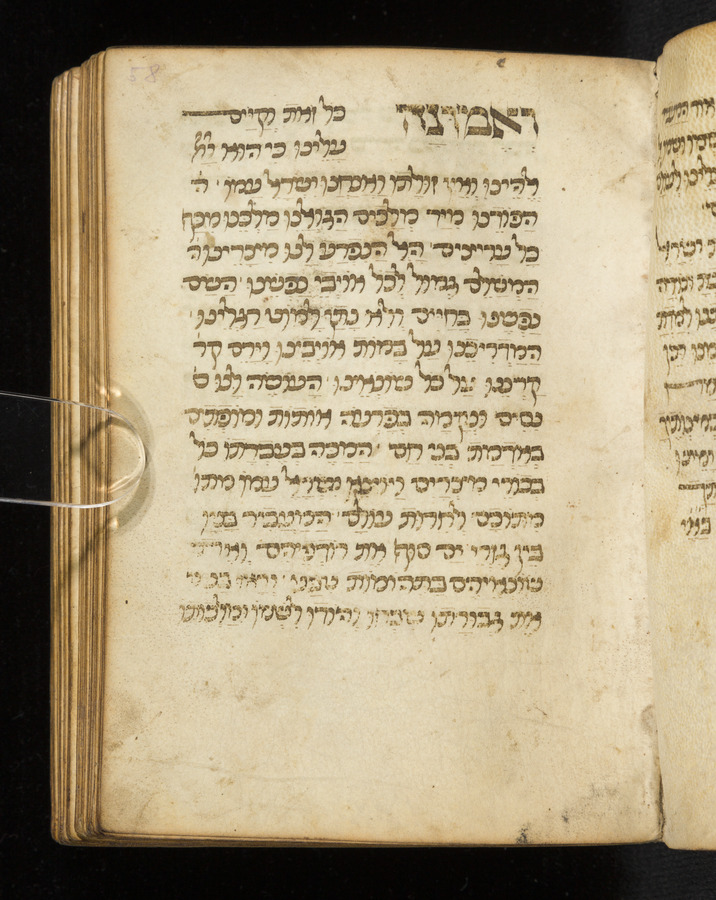 58
ואמונה כל זאת קיים
עלינו כי הוא ייי
אלהינו ואין זולתו ואנחנו ישראל עמו ה
הפודנו מיד מלכים הגואלנו מלכנו מכף
כל עריצים האל הנפרע לנו מצרינו ה
המשלם גמול לכל אויבי נפשנו השם
נפשנו בחיים ולא נתן למוט רגלינו
המדריכנו על במות אויבינו וירם קר
קרננו על כל שונאינו העושה לנו ס
נסים ונקמה בפרעה אותות ומופתים
באדמת בני חם המכה בעברתו כל
בכורי מצרים ויוצא ישראל עמו מתו
מתוכם לחרות עולם המעביר בניו
בין גזרי ים סוף את רודפיהם ואת
שונאיהם בתהומות טבע וראו בניו
את גבורתו שבחו והודו לשמו ומלכותו